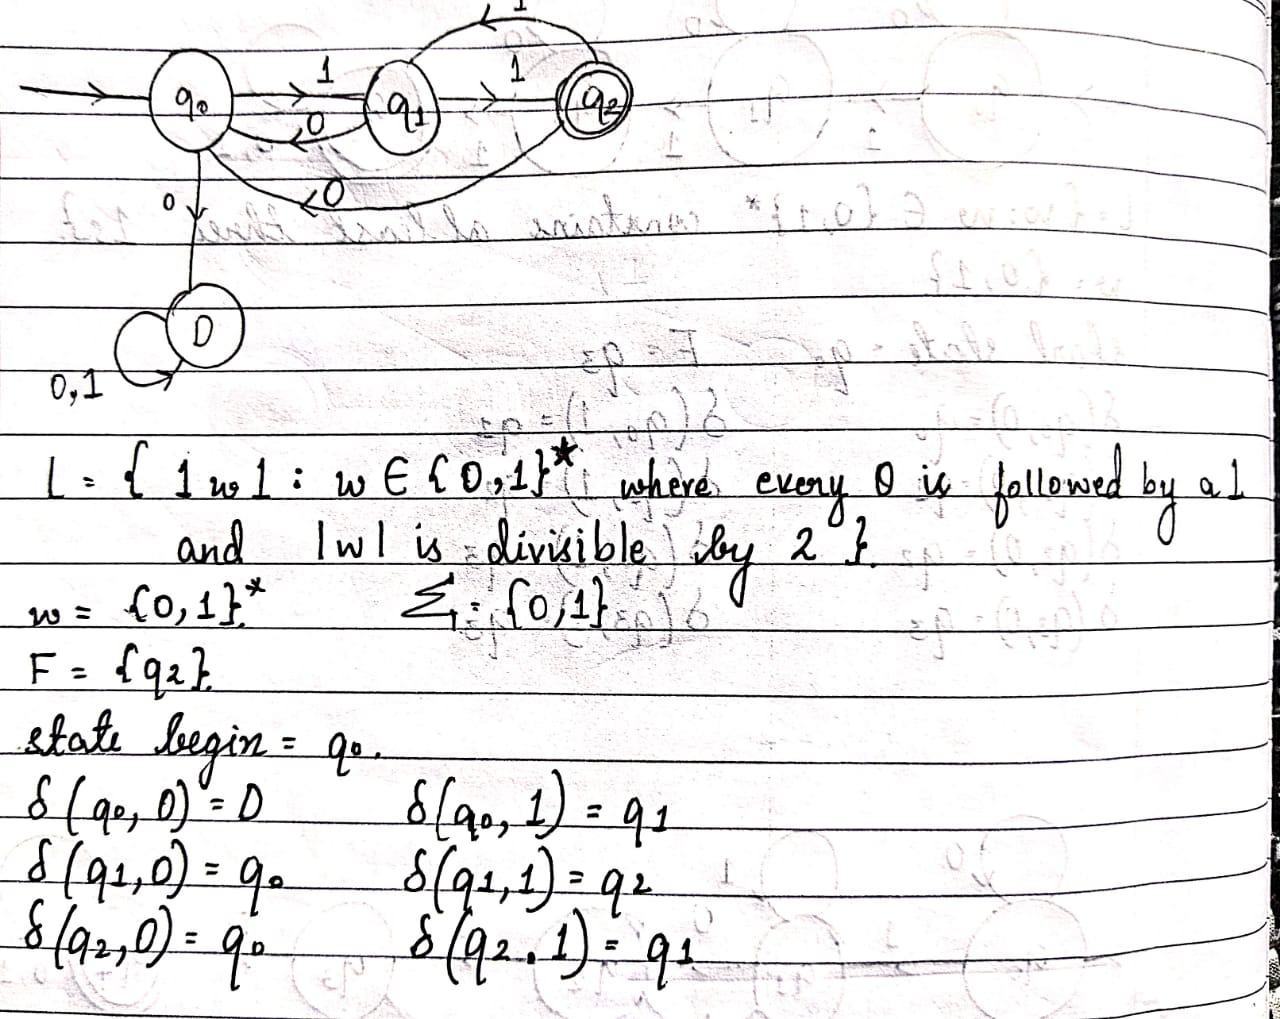 1
q₀ 1 q1 1 q2
0
0
0
D
0,1
L = { 1w1 : w ∈ {0,1}* where every 0 is followed by a 1
and |w| is divisible by 2 }.
w = {0,1}* Σ = {0,1}
F = {q2}.
state begin = q₀.
δ(q₀, 0) = D δ(q₀, 1) = q1
δ(q1, 0) = q₀ δ(q1, 1) = q2
δ(q2, 0) = q₀ δ(q2, 1) = q1